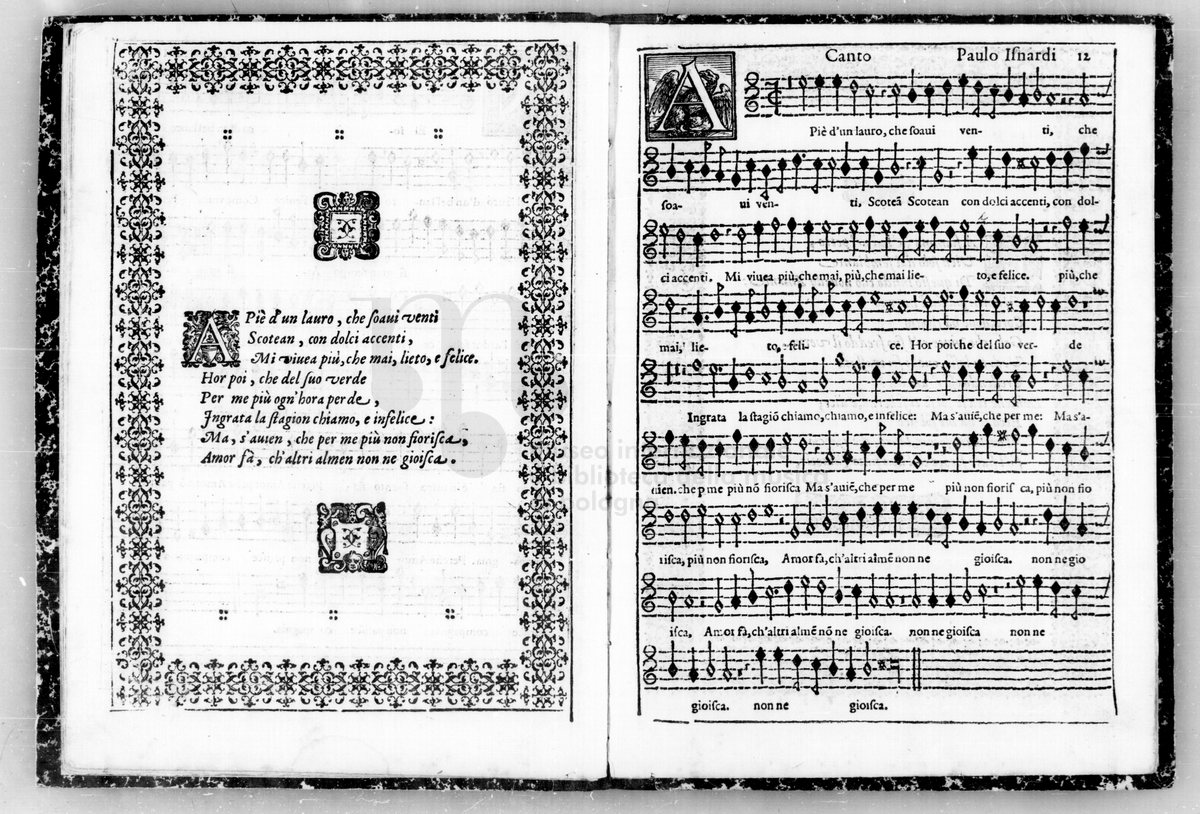 A Piè d'un lauro, che ſoaui venti
Scotean, con dolci accenti,
Mi viuea più, che mai, lieto, e felice.
Hor poi, che del ſuo verde
Per me più ogn'hora perde,
Ingrata la ſtagion chiamo, e infelice:
Ma, s'auien, che per me più non fioriſca,
Amor fà, ch'altri almen non ne gioiſca.
Canto Paulo Iſnardi 12
A Piè d'un lauro, che ſoaui ven- ti, che
ſoa- ui ven- ti, Scoteã Scotean con dolci accenti, con dol-
ci accenti. Mi viuea più, che mai, più, che mai lie- to, e felice. più, che
mai, lie- to, feli- ce. Hor poi che del ſuo ver- de
Ingrata la ſtagiõ chiamo, chiamo, e infelice: Ma s'auiẽ, che per me: Ma s'a-
uien. che p me più nõ fioriſca Ma s'auiẽ, che per me più non fioriſ ca, più non fio
riſca, più non fioriſca, Amor fà, ch'altri almẽ non ne gioiſca. non ne gio
iſca, Amor fà, ch'altri almẽ nõ ne gioiſca. non ne gioiſca non ne
gioiſca. non ne gioiſca.